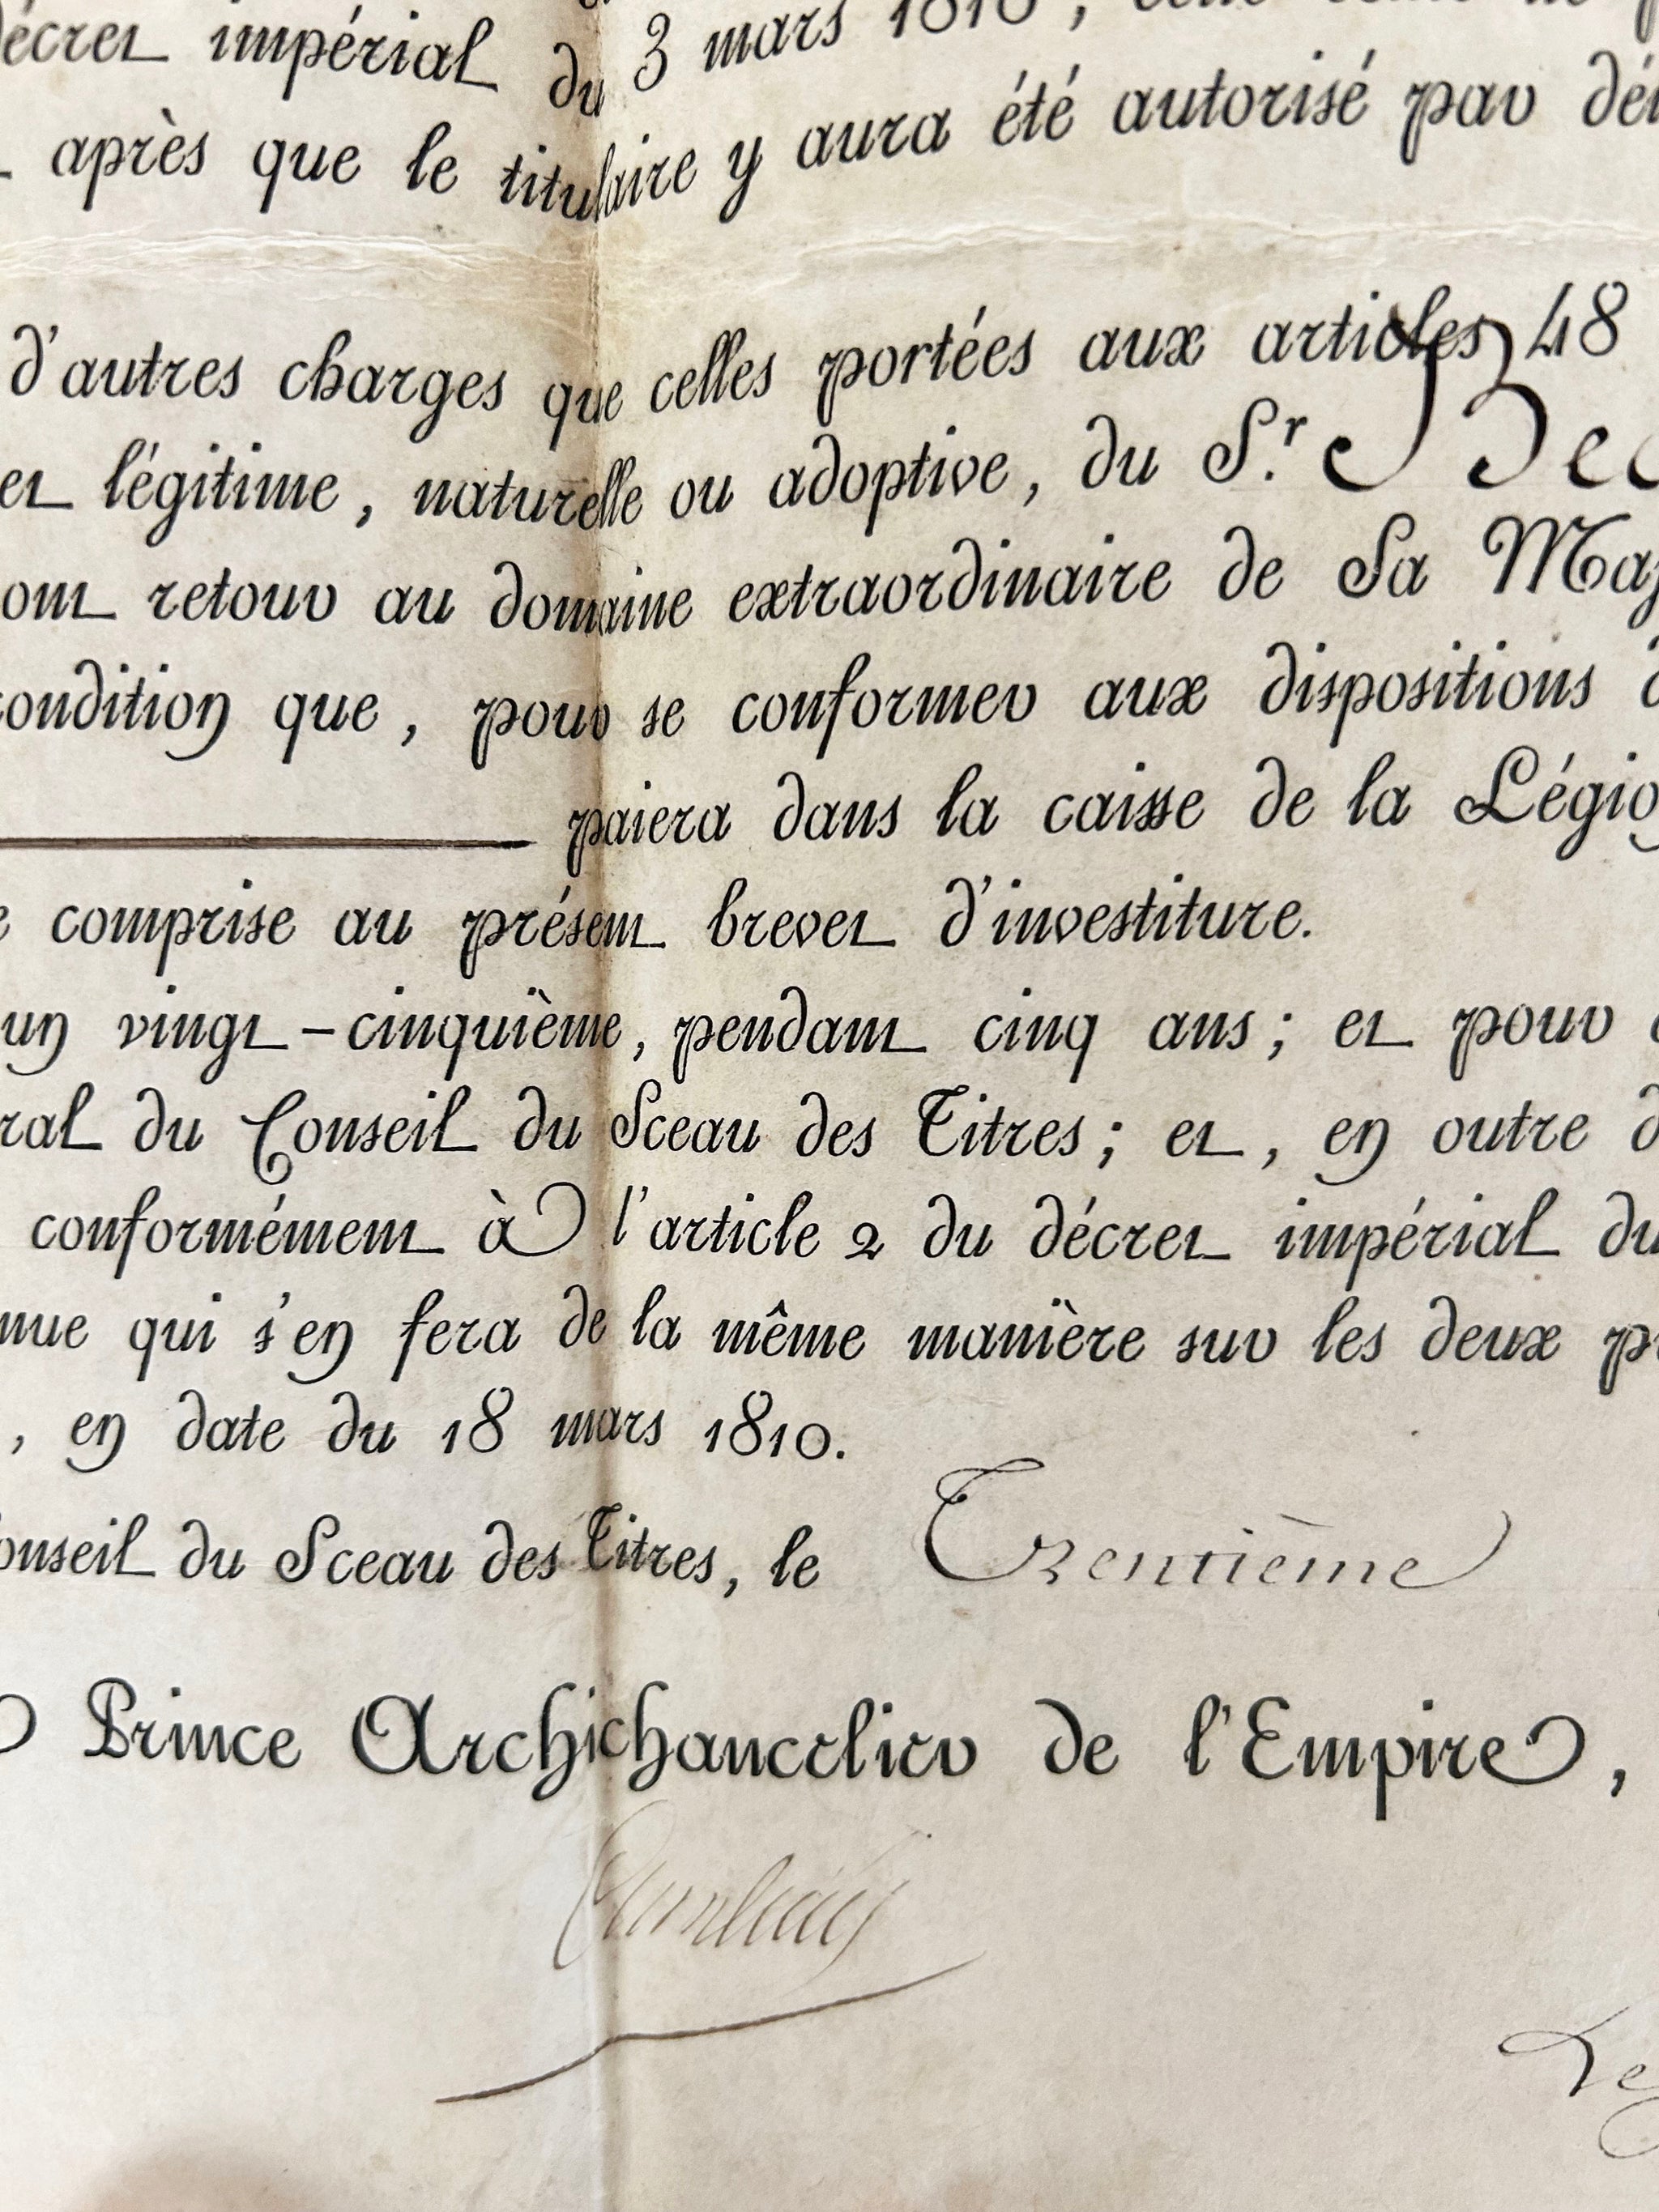 décret impérial du 3 mars 1810,
après que le titulaire y aura été autorisé par
d'autres charges que celles portées aux articles 48
et légitime, naturelle ou adoptive, du S.r Bec
retour au domaine extraordinaire de Sa Maj
condition que, pour se conformer aux dispositions d
paiera dans la caisse de la Légio
comprise au présent brevet d'investiture.
un vingt-cinquième, pendant cinq ans; et pour
ral du Conseil du Sceau des Titres; et, en outre d
conformément à l'article 2 du décret impérial du
nue qui s'en fera de la même manière sur les deux
, en date du 18 mars 1810.
onseil du Sceau des Titres, le Trentième
Prince Archichancelier de l'Empire,